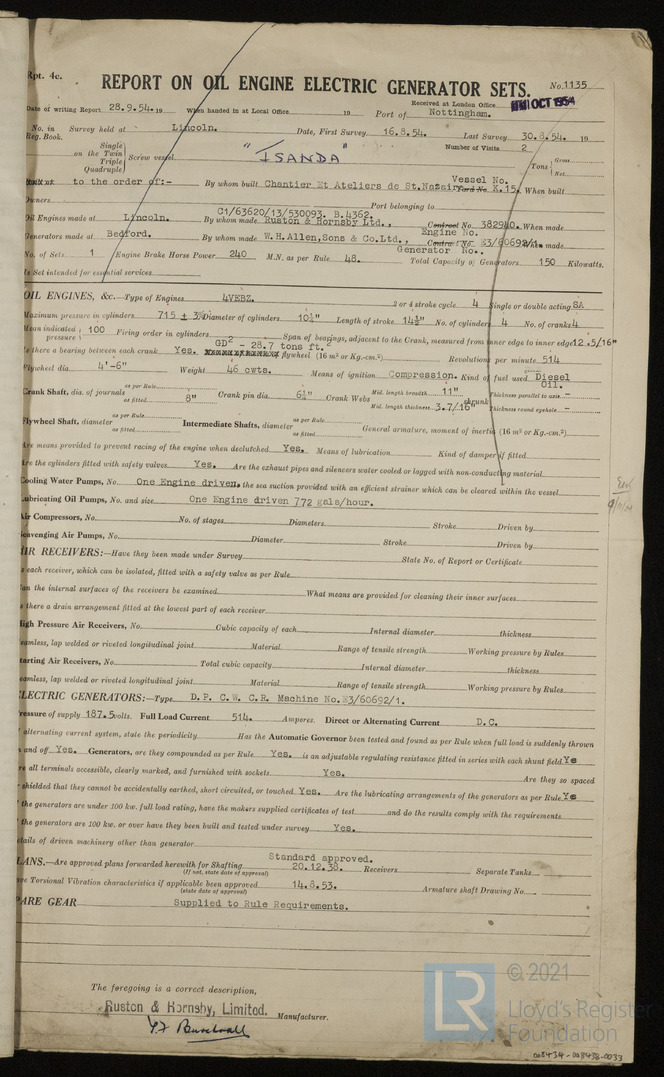 Rpt. 4c.
REPORT ON OIL ENGINE ELECTRIC GENERATOR SETS. No. 1135
Received at London Office OCT 1954
Date of writing Report 28.9.54. 19 When handed in at Local Office 19 Port of Nottingham.
No. in Reg. Book. Survey held at Lincoln. Date, First Survey 16.8.54. Last Survey 30.8.54. 19
Number of Visits 2
Single on the Twin Triple Quadruple Screw vessel "ISANDA" Tons Gross Net
to the order of:- By whom built Chantier Et Ateliers de St.Nazair Vessel No. Yard No. K.15. When built
Owners Port belonging to
C1/63620/13/530093. B.4362.
Oil Engines made at Lincoln. By whom made Ruston & Hornsby Ltd., Contract No. 382940. When made
Engine No.
Generators made at Bedford. By whom made W.H.Allen,Sons & Co.Ltd., Contract No. E3/60692/1. made
Generator No..
No. of Sets 1 Engine Brake Horse Power 240 M.N. as per Rule 48. Total Capacity of Generators 150 Kilowatts.
Is Set intended for essential services
OIL ENGINES, &c.—Type of Engines 4VEBZ. 2 or 4 stroke cycle 4 Single or double acting SA
Maximum pressure in cylinders 715 ± 3% Diameter of cylinders 10¼" Length of stroke 14½" No. of cylinders 4 No. of cranks 4
Mean indicated pressure 100 Firing order in cylinders Span of bearings, adjacent to the Crank, measured from inner edge to inner edge 12.5/16"
GD² - 28.7 tons ft.²
Is there a bearing between each crank Yes. flywheel (16 m² or Kg.-cm.²) Revolutions per minute 514
Flywheel dia. 4'-6" Weight 46 cwts. Means of ignition Compression. Kind of fuel used Diesel Oil.
Crank Shaft, dia. of journals as per Rule as fitted 8" Crank pin dia. 6¼" Crank Webs Mid. length breadth 11" Mid. length thickness 3.7/16" shrunk Thickness parallel to axis - Thickness round eyehole -
Flywheel Shaft, diameter as per Rule as fitted Intermediate Shafts, diameter as per Rule as fitted General armature, moment of inertia (16 m² or Kg.-cm.²)
Are means provided to prevent racing of the engine when declutched Yes. Means of lubrication Kind of damper if fitted
Are the cylinders fitted with safety valves Yes. Are the exhaust pipes and silencers water cooled or lagged with non-conducting material
Cooling Water Pumps, No. One Engine driven. the sea suction provided with an efficient strainer which can be cleared within the vessel
Lubricating Oil Pumps, No. and size One Engine driven 772 gals/hour.
Air Compressors, No. No. of stages Diameters Stroke Driven by
Scavenging Air Pumps, No. Diameter Stroke Driven by
AIR RECEIVERS:—Have they been made under Survey State No. of Report or Certificate
Is each receiver, which can be isolated, fitted with a safety valve as per Rule
Can the internal surfaces of the receivers be examined What means are provided for cleaning their inner surfaces
Is there a drain arrangement fitted at the lowest part of each receiver
High Pressure Air Receivers, No. Cubic capacity of each Internal diameter thickness
Seamless, lap welded or riveted longitudinal joint Material Range of tensile strength Working pressure by Rules
Starting Air Receivers, No. Total cubic capacity Internal diameter thickness
Seamless, lap welded or riveted longitudinal joint Material Range of tensile strength Working pressure by Rules
ELECTRIC GENERATORS:—Type D.P. C.W. C.R. Machine No.E3/60692/1.
Pressure of supply 187.5 volts. Full Load Current 514. Amperes. Direct or Alternating Current D.C.
If alternating current system, state the periodicity Has the Automatic Governor been tested and found as per Rule when full load is suddenly thrown
on and off Yes. Generators, are they compounded as per Rule Yes. is an adjustable regulating resistance fitted in series with each shunt field Ye
Are all terminals accessible, clearly marked, and furnished with sockets Yes. Are they so spaced
or shielded that they cannot be accidentally earthed, short circuited, or touched Yes. Are the lubricating arrangements of the generators as per Rule Ye
If the generators are under 100 kw. full load rating, have the makers supplied certificates of test and do the results comply with the requirements
If the generators are 100 kw. or over have they been built and tested under survey Yes.
Details of driven machinery other than generator
Standard approved.
PLANS.—Are approved plans forwarded herewith for Shafting 20.12.38. Receivers Separate Tanks
(If not, state date of approval)
Have Torsional Vibration characteristics if applicable been approved 14.8.53. Armature shaft Drawing No.
(state date of approval)
SPARE GEAR Supplied to Rule Requirements.
The foregoing is a correct description,
Ruston & Hornsby, Limited. Manufacturer.
© 2021
LR
Lloyd's Register
Foundation
008434-008438-0033